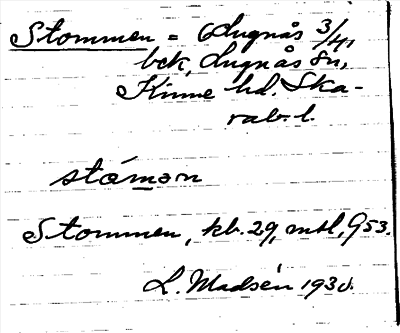 Stommen = Lugnås 3/4,
bck, Lugnås sn,
Kinne hd. Ska-
rab. l.
stòmən
Stommen, kb. 29, mtl, 953.
L. Madsén 1930.